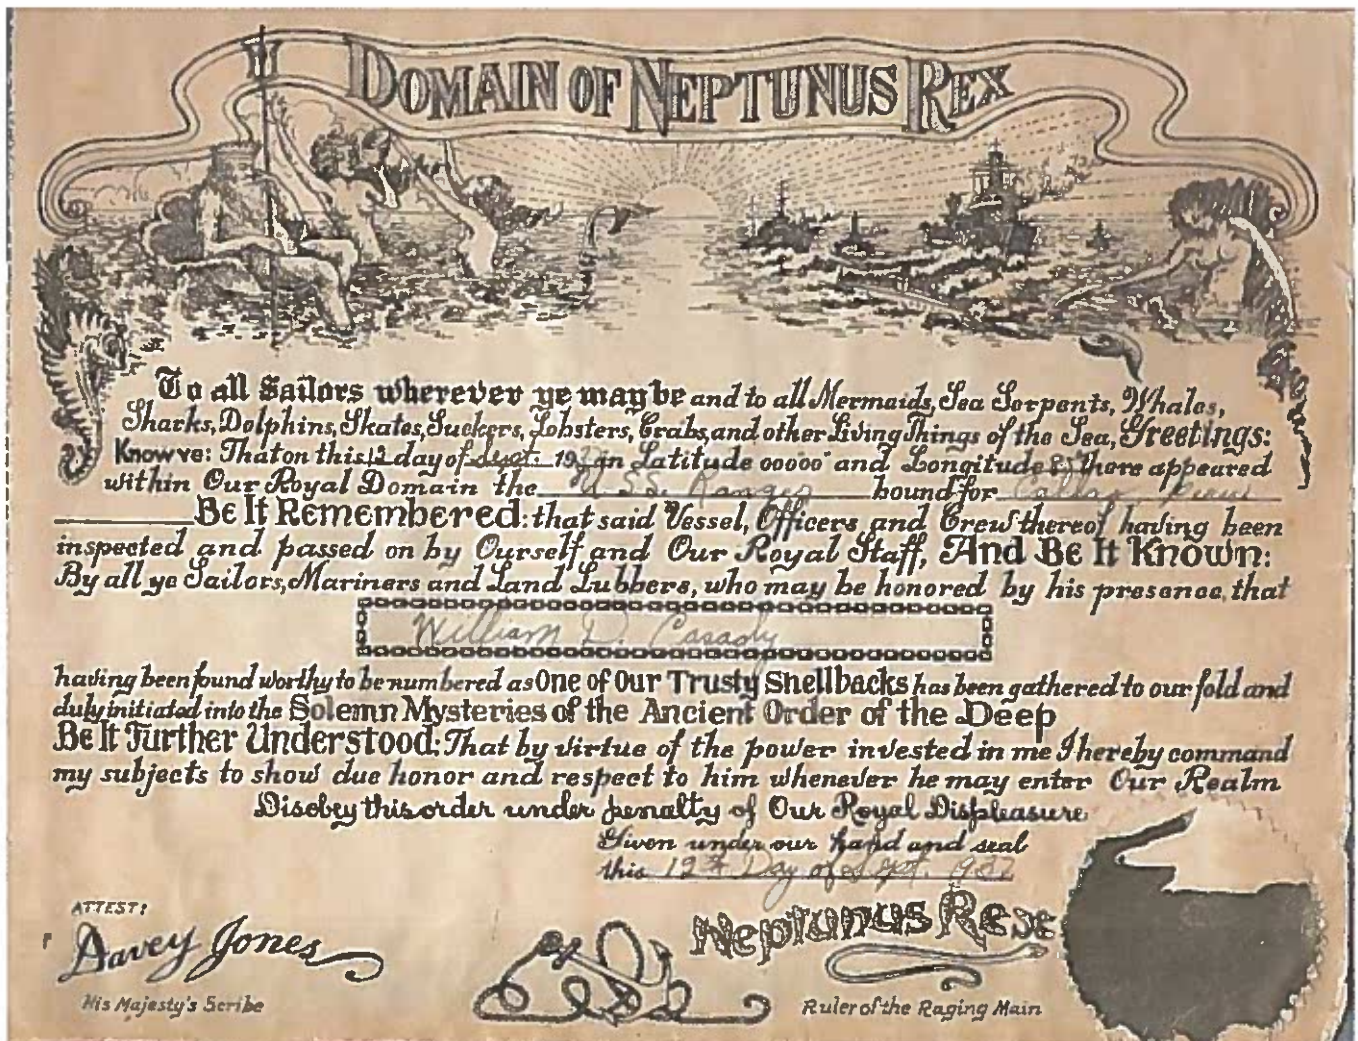 DOMAIN OF NEPTUNUS REX
To all Sailors wherever ye may be and to all Mermaids, Sea Serpents, Whales,
Sharks, Dolphins, Skates, Suckers, Lobsters, Crabs, and other Living Things of the Sea, Greetings:
Know ye: That on this 12 day of Sept. 19 in Latitude 00000 and Longitude there appeared
within Our Royal Domain the U.S.S. Ranger bound for Callao, Peru
Be It Remembered: that said Vessel, Officers and Crew thereof having been
inspected and passed on by Ourself and Our Royal Staff, And Be It Known:
By all ye Sailors, Mariners and Land Lubbers, who may be honored by his presence, that
William D. Casady
having been found worthy to be numbered as One of Our Trusty Shellbacks has been gathered to our fold and
duly initiated into the Solemn Mysteries of the Ancient Order of the Deep
Be It Further Understood: That by virtue of the power invested in me I hereby command
my subjects to show due honor and respect to him whenever he may enter Our Realm
Disobey this order under penalty of Our Royal Displeasure
Given under our hand and seal
this 12th Day of Sept.
ATTEST:
Davey Jones
His Majesty's Scribe
Neptunus Rex
Ruler of the Raging Main